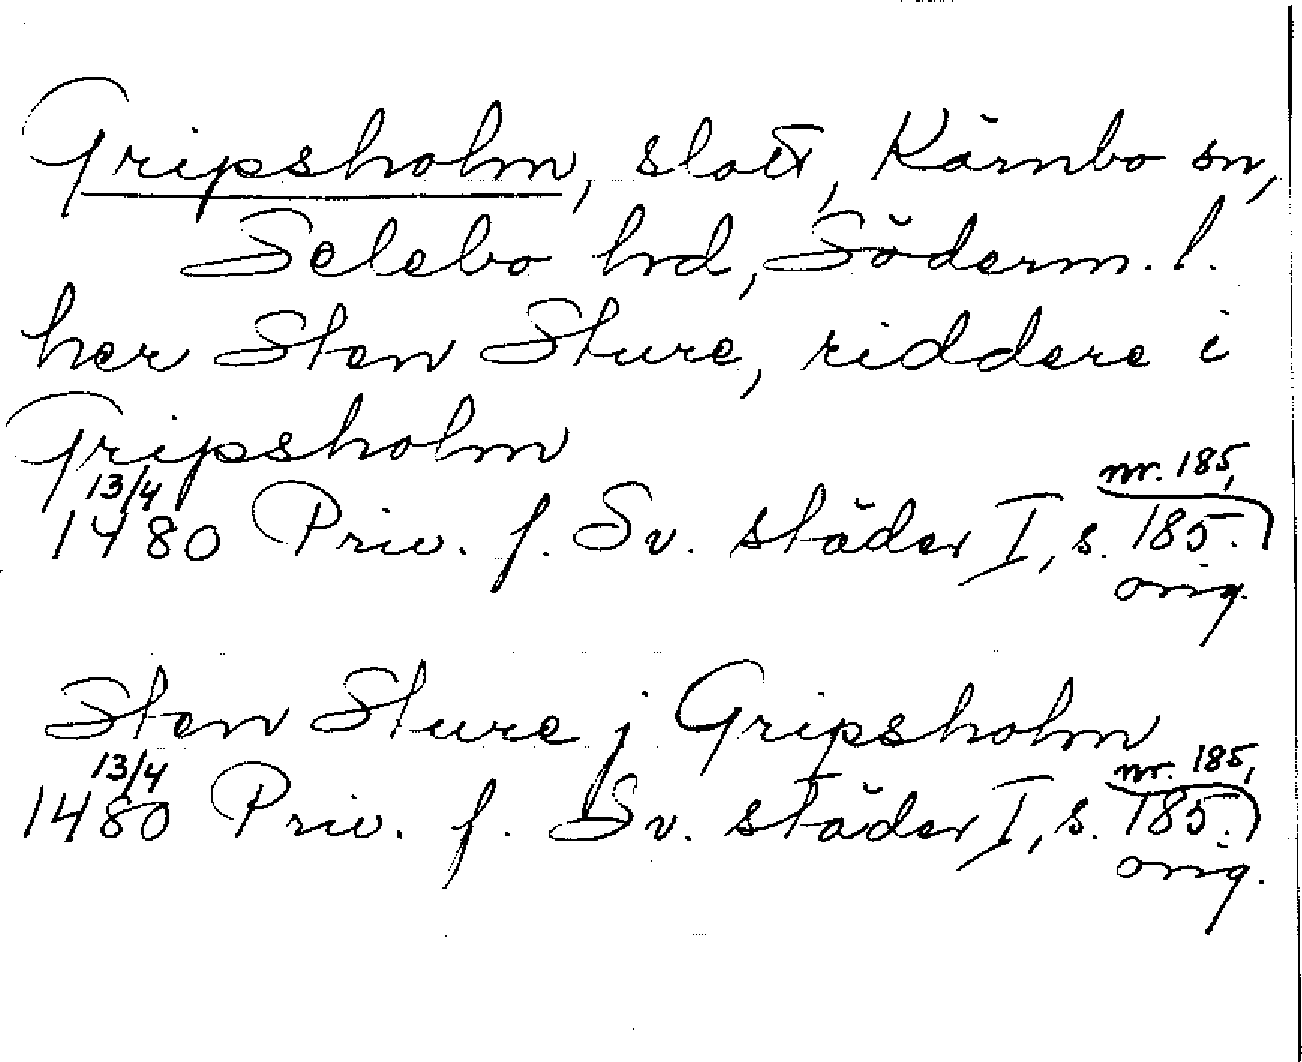 Gripsholm, slott, Kärnbo sn,
Selebo hrd, Söderm. l.
her Sten Sture, riddere i
Gripsholm
13/4 nr. 185,
1480 Priv. f. Sv. städer I, s. 185.
orig.
Sten Sture j Gripsholm
13/4 nr. 185,
1480 Priv. f. Sv. städer I, s. 185.
orig.